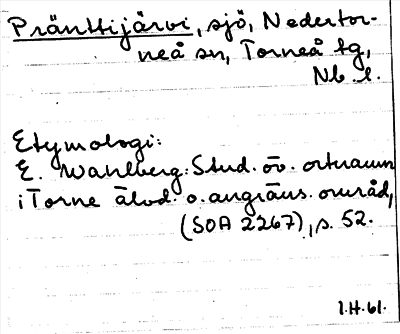 Pränttijärvi, sjö, Nedertor-
neå sn, Torneå tg,
Nb. l.
Etymologi:
E. Wahlberg: Stud. öv. ortnamn
i Torne älvd. o. angräns. område,
(SOA 2267), s. 52.
I.H. 61.